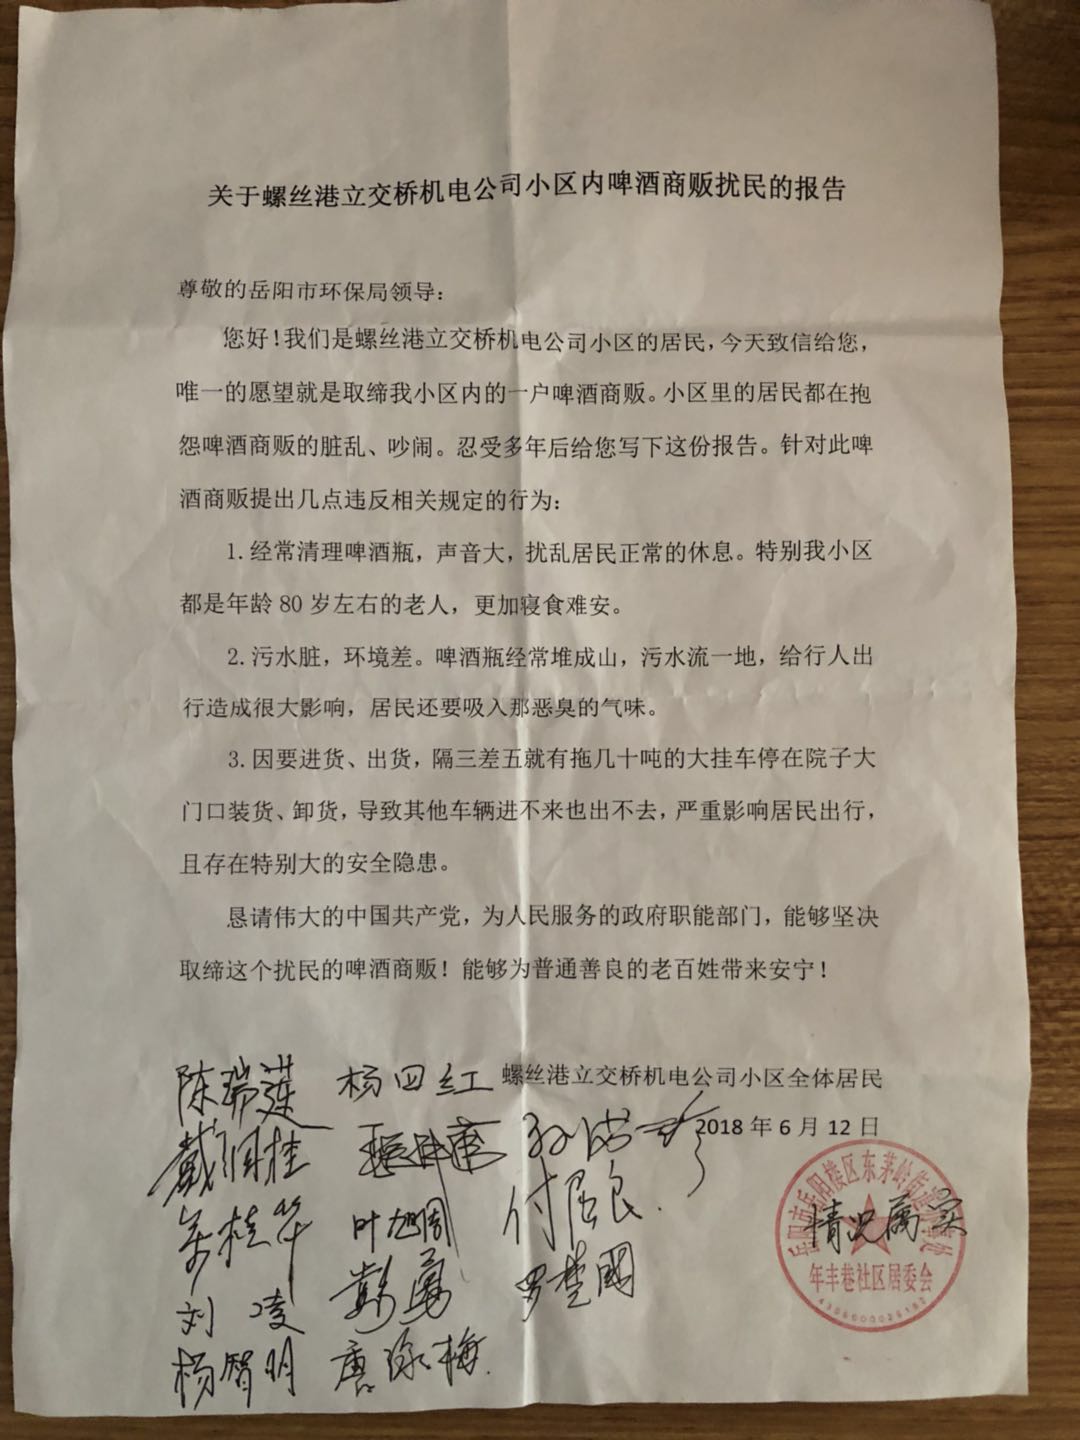 关于螺丝港立交桥机电公司小区内啤酒商贩扰民的报告
尊敬的岳阳市环保局领导：
您好！我们是螺丝港立交桥机电公司小区的居民，今天致信给您，
唯一的愿望就是取缔我小区内的一户啤酒商贩。小区里的居民都在抱
怨啤酒商贩的脏乱、吵闹。忍受多年后给您写下这份报告。针对此啤
酒商贩提出几点违反相关规定的行为：
1.经常清理啤酒瓶，声音大，扰乱居民正常的休息。特别我小区
都是年龄 80 岁左右的老人，更加寝食难安。
2.污水脏，环境差。啤酒瓶经常堆成山，污水流一地，给行人出
行造成很大影响，居民还要吸入那恶臭的气味。
3.因要进货、出货，隔三差五就有拖几十吨的大挂车停在院子大
门口装货、卸货，导致其他车辆进不来也出不去，严重影响居民出行，
且存在特别大的安全隐患。
恳请伟大的中国共产党，为人民服务的政府职能部门，能够坚决
取缔这个扰民的啤酒商贩！能够为普通善良的老百姓带来安宁！
螺丝港立交桥机电公司小区全体居民
2018 年 6 月 12 日
陈瑞莲 杨四红
桂华 叶旭
付居良
刘凌 彭勇 罗楚国
杨智明 唐泳梅
情况属实
岳阳市岳阳楼区东茅岭街道办事处
年丰巷社区居委会